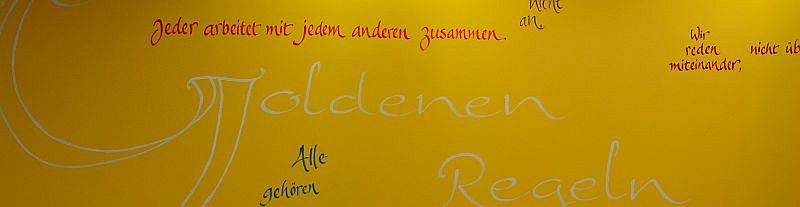 nicht
an.
Jeder arbeitet mit jedem anderen zusammen.
Wir
reden nicht üb
miteinander,
Goldenen
Alle
gehören
Regeln